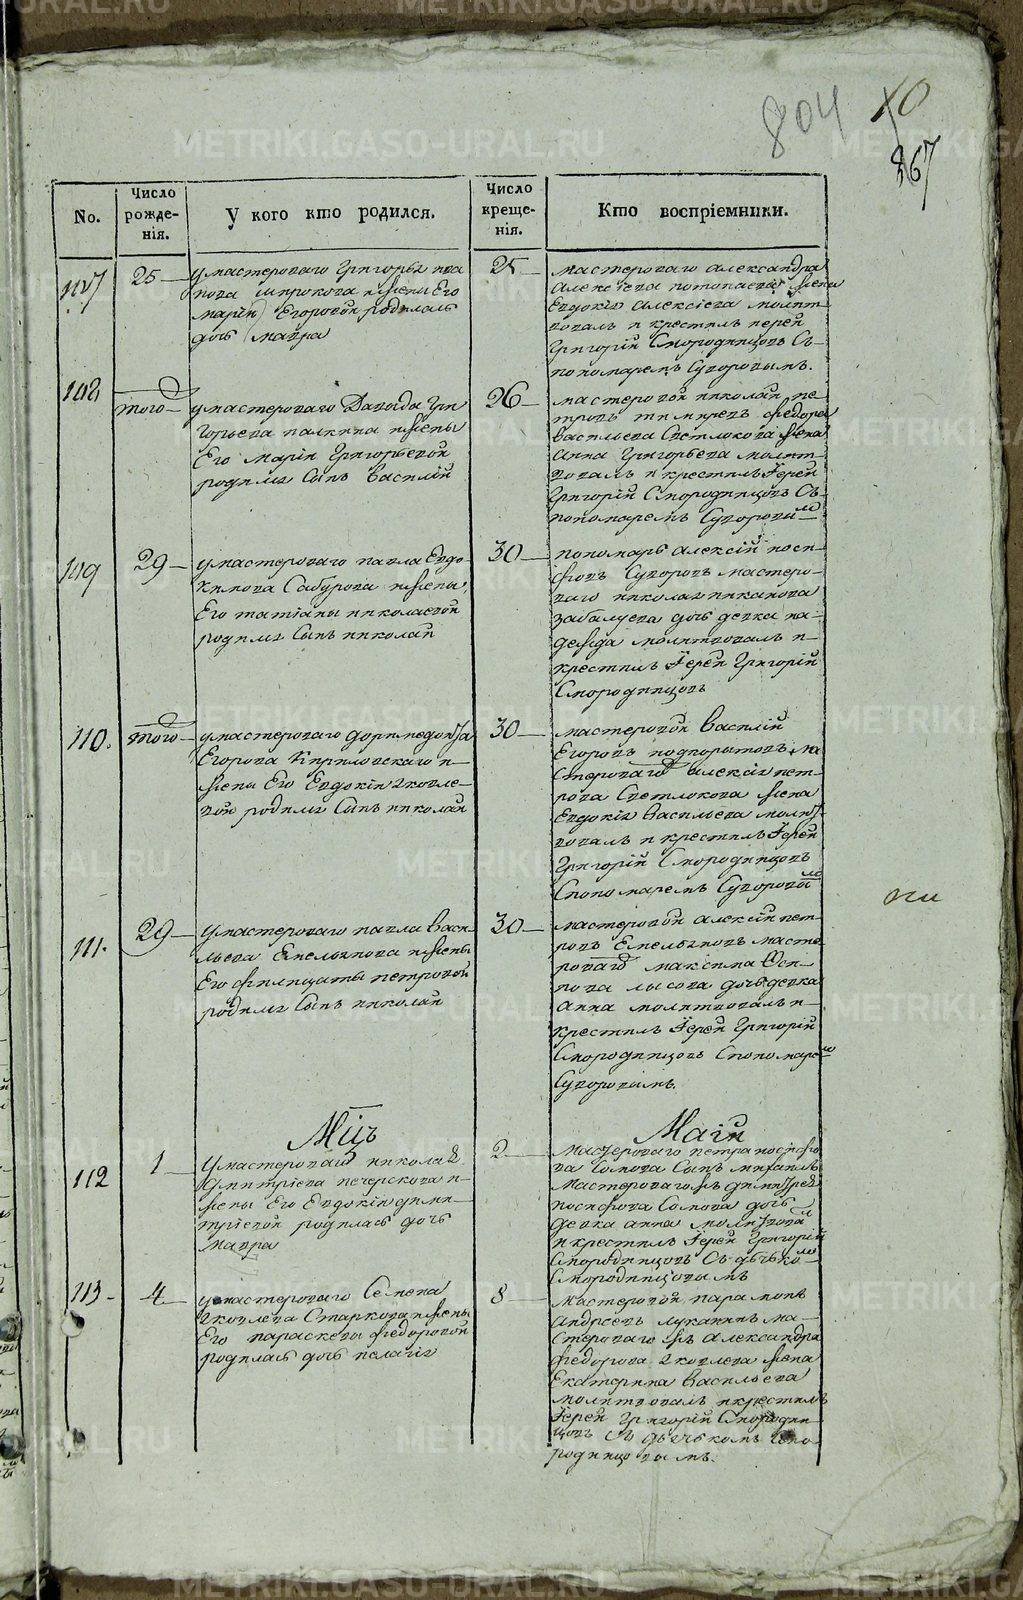 804 10
867
No.
Число рожде-нія.
У кого кто родился.
Число креще-нія.
Кто воспріемники.
107
25
умастероваго Григорья ива
нова широкова ижены Его
маріи Егоровой родилась
дочь мавра
25
мастероваго александра
алексіева потопаева жена
Евдокія алексіева молит
вовалъ и крестилъ иерей
Григорій Смородинцовъ Съ
пономаремъ Суворовымъ.
108
того
умастероваго Давыда Гри
горьева палкина ижены
Его маріи Григорьевой
родился Сынъ василій
26
мастеровой николай пе
тровъ федора
васильева Светлокова жена
анна Григорьева молит
вовалъ и крестилъ Іерей
Григорій Смородинцовъ Съ
пономаремъ Суворовым
109
29
умастероваго павла Евдо
кимова Сабурова ижены
Его татіаны николаевой
родился Сынъ николай
30
пономарь алексій иоси
фовъ Суворовъ мастеро
ваго николая никанова
дочь девка на
дежда молитвовалъ и
крестилъ Іерей Григорій
Смородинцовъ
110.
того
умастероваго дормедонта
Егорова Кириловскаго и
жены Его Евдокіи яковле
вой родился Сынъ николай
30
мастеровой Василій
Егоровъ ма
стероваго алексія пет
рова Светлокова жена
Евдокія васильева молит
вовалъ и крестилъ Іерей
Григорій Смородинцовъ
Спономаремъ Суворовым
111.
29
умастероваго павла васи
льева Емельянова ижены
Его филицаты петровой
родился Сынъ николай
30
мастеровой алексій пет
ровъ Емельяновъ масте
роваго максима Оси
пова лысова дочь девка
анна молитвовалъ и
крестилъ Іерей Григорій
Смородинцовъ Спономаре
Суворовымъ.
Мцъ
Маій
112
1
Умастероваго николая
Димитріева печерскова и
жены Его Евдокіи дими
тріевой родилась дочь
мавра
2
мастероваго петра иосифо
ва Сомова Сынъ михаилъ
мастероваго жъ димитрея
иосифова Сомова дочь
девка анна молитвовал
и крестилъ Іерей Григорій
Смородинцовъ Съ дьячко
Смородинцовымъ
113
4
умастероваго Семена
яковлева Старкова ижены
Его параскевы федоровой
родилась дочь пелагія
8
мастеровой парамонъ
андреевъ луканинъ ма
стероваго жъ александра
федорова яковлева жена
Екатерина васильева
молитвовалъ икрестилъ
Іерей Григорій Смородин
цовъ Съ дьячкомъ Смо
родинцовымъ.
METRIKI.GASO-URAL.RU